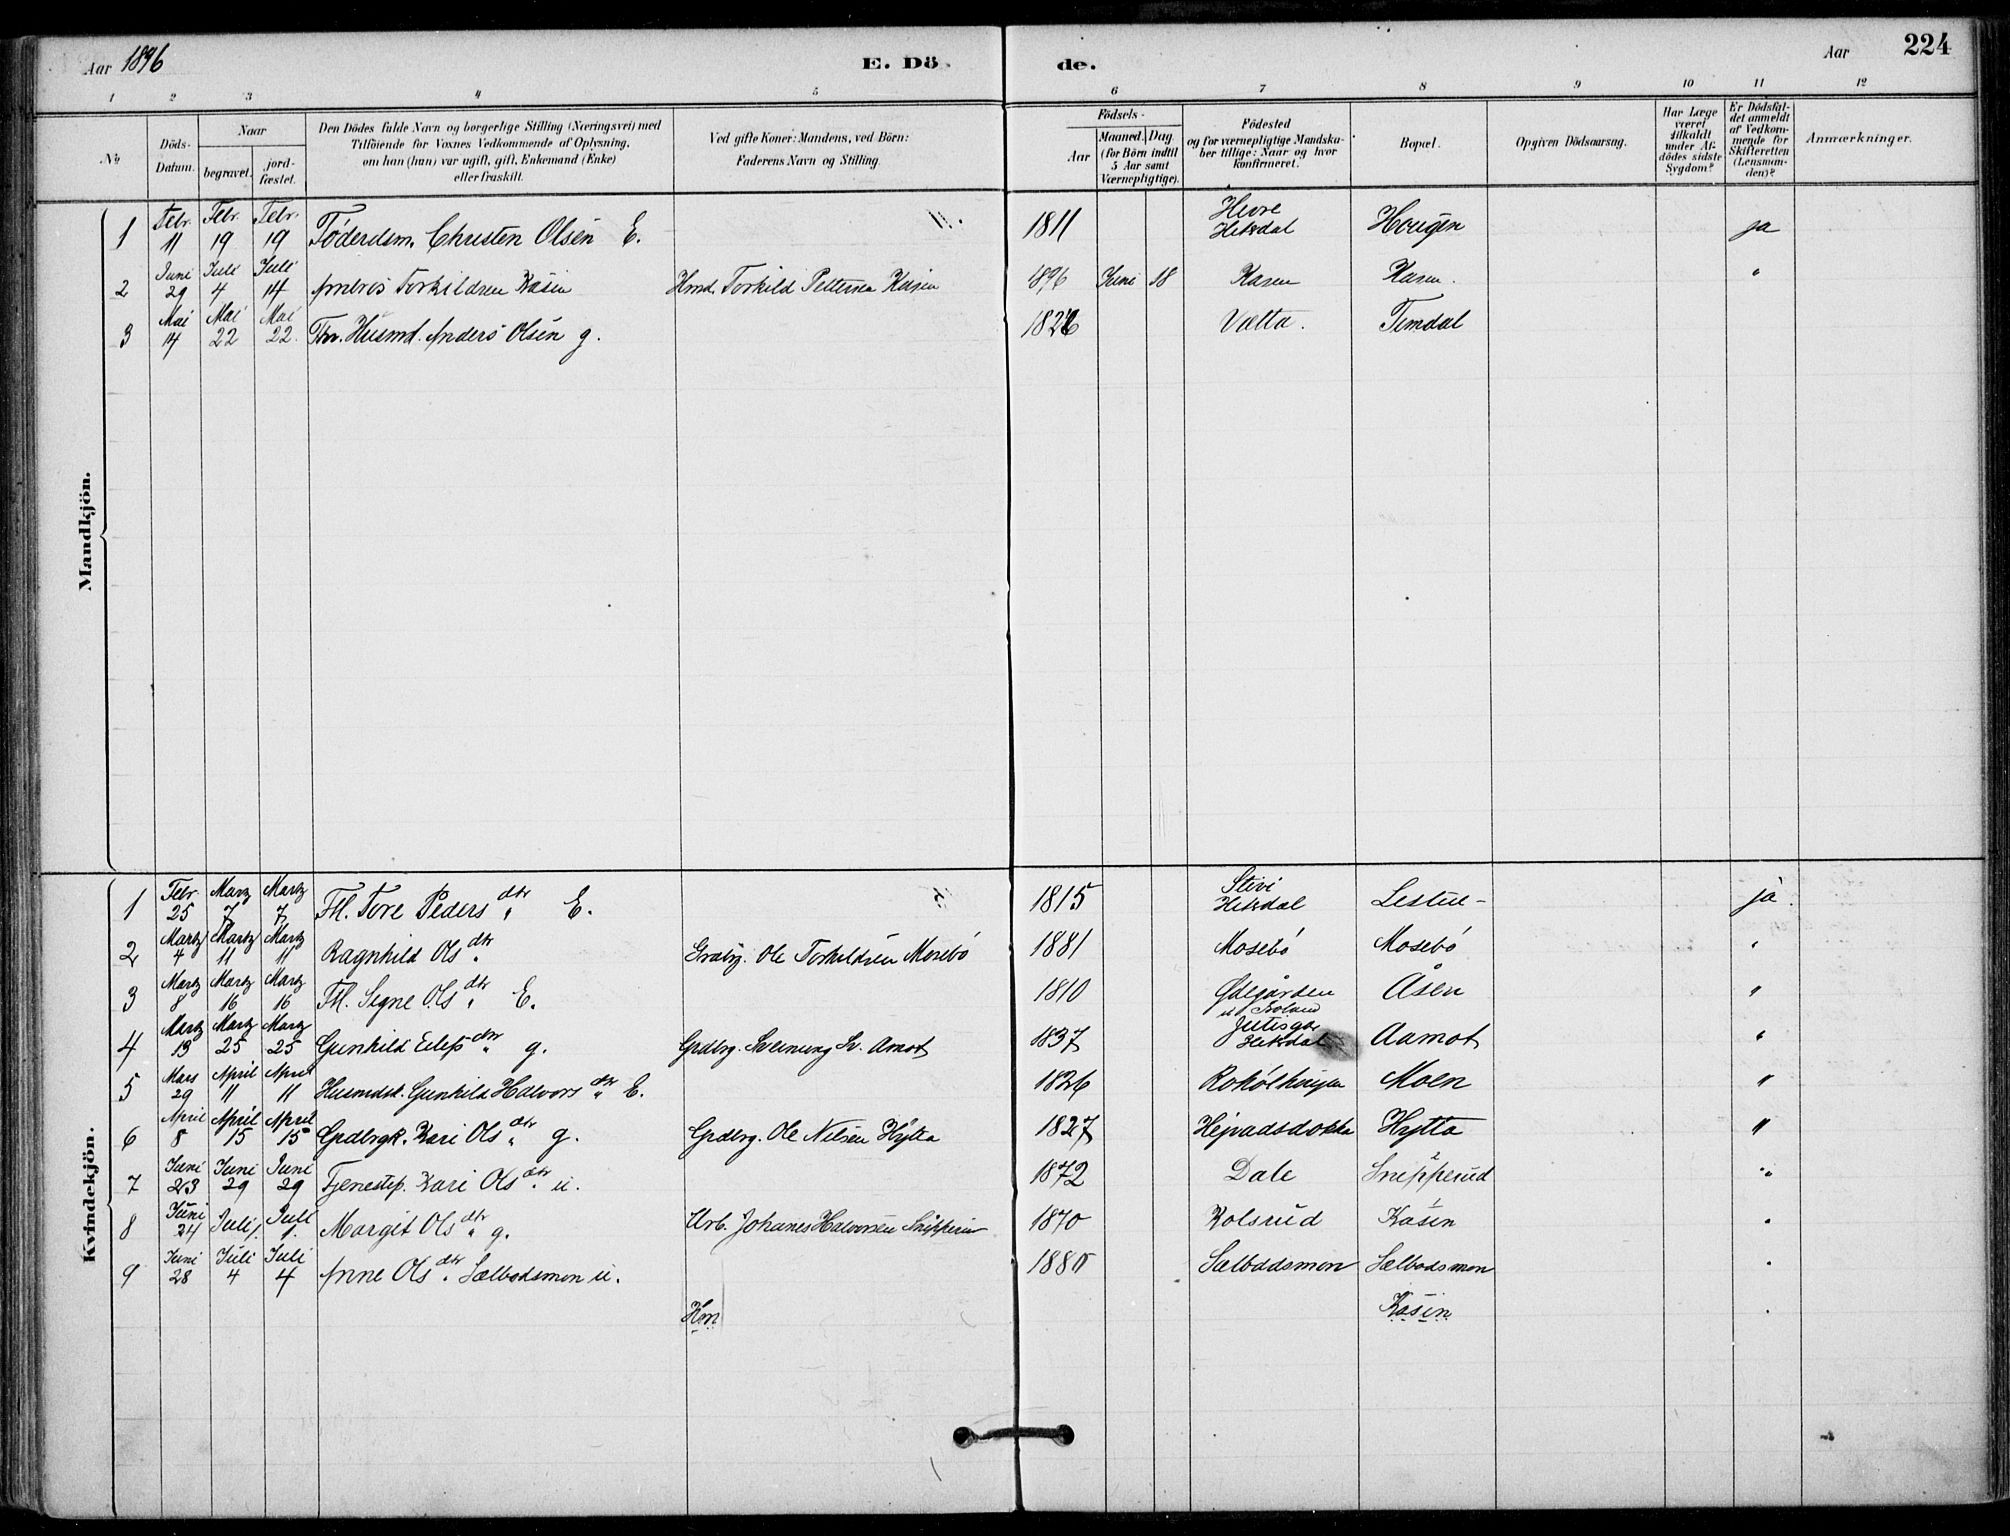 Aar 1896 E. Dö de. Aar 224
1 2 3 4 5 6 7 8 9 10 11 12
No
Döds-Datum.
Naar
begravet.
jord-fæstet.
Den Dödes fulde Navn og borgerlige Stilling (Næringsvei) med
Tilföiende for Voxnes Vedkommende af Oplysning,
om han (hun) var ugift, gift, Enkemand (Enke)
eller fraskilt.
Ved gifte Koner: Mandens, ved Börn:
Faderens Navn og Stilling.
Födsels-
Aar
Maaned. Dag
(for Börn indtil
5 Aar samt
Værnepligtige).
Födested
og for værnepligtige Mandska-
ber tillige: Naar og hvor
konfirmeret.
Bopæl.
Opgiven Dödsaarsag.
Har Læge
været
tilkaldt
under Af-
dödes sidste
Sygdom?
Er Dödsfal-
det anmeldt
af Vedkom-
mende for
Skifteretten
(Lensman-
den)?
Anmærkninger.
Mandkjön.
1 Febr. 11 Febr. 19 Febr. 19 Föderdsm. Christen Olsen E. 1811 Hitrdal Hougen ja
2 Juni 29 Juli 4 Juli 14 Torkildsen Kåsin Hmd. Torkild Pettersen Kåsin 1896 Juni 18 Kasen Kasen. "
3 Mai 14 Mai 22 Mai 22. Husmd. Anders Olsen g. Vætta. Temdal
Kvindekjön.
1 Febr. 25 Marz 7 Martz 7 Fl. Tore Peders dtr E. 1815 Stivi Hitrdal Lestue- ja.
2 Martz 4 Martz 11 Martz 11 Ragnhild Ols dtr Ole Torkildsen Mosebö 1881 Mosebö Mosebö "
3 Martz 8 Martz 16 Martz 16 Fl. Signe Ols dtr E. 1810 Ödegården Åsen "
4 Martz 13 Martz 25 Martz 25 Gunhild Eilefs dtr g. Grdbrg. Sveinung Sv. Amot 1837 Hitrdal Aamot "
5 Mars 29 April 11 April 11 Husmdsk. Gunhild Halvors dtr E. 1826 Moen "
6 April 8 April 15 April 15 Grdbrgk. Kari Ols dtr g. Grdbrg. Ole Nilsen Hytta 1827 Hytta "
7 Juni 23 Juni 29 Juni 29 Tjenestep. Kari Ols dtr u. 1872 Dale Snipperud "
8 Juni 24 Juli 1. Juli 1. Margit Ols dtr g. Arb. Johanes Halvorsen 1870 Kolsrud Kåsin "
9 Juni 28 Juli 4 Juli 4 Anne Ols dtr. Sælbodsmon u. Sælbodsmon Sælbodsmon "
Hm Kåsin "